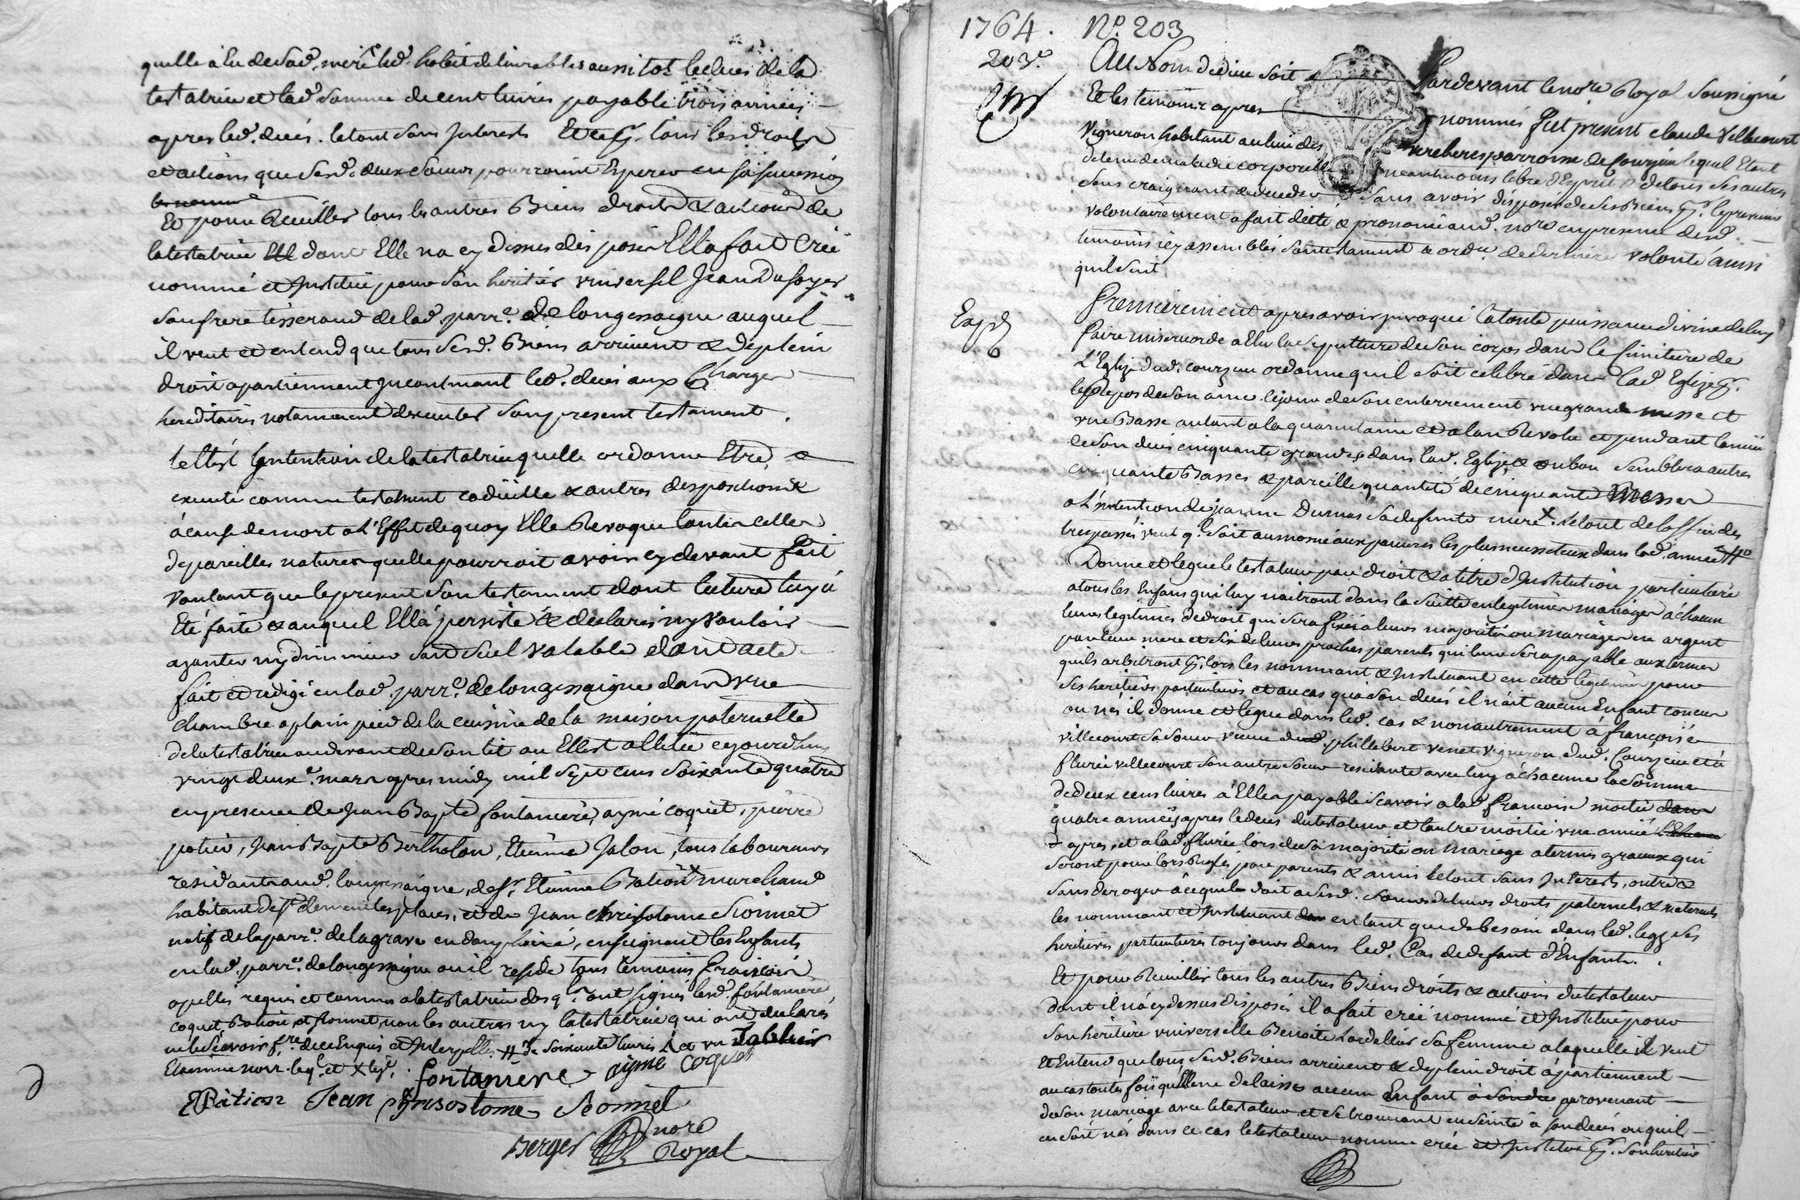 quelle a lu de sad. mere led. habit delivrables aussi tot le deces de la
testatrice et lad. somme de cent livres payable trois années
apres led. deces. le tout sans Interests Et ce tous les droits
et actions que sesd. deux soeurs pourroient Esperer en sa succession
Et pour Receuiller tous les autres Biens droits & actions de
la testatrice dont Elle na cy dessus disposé Ella fait Créé
nommé et Institué pour son heritier universel Jean Dufoyer
son frere tisserand de lad. parr.e de longessaigne auquel
il veut et entend que tous sesd. Biens arrivent & de plein
droit apartiennent Incontinant led. deces aux Charges
hereditaires notamment dexecuter son present testament.
telle est lintention de la testatrice quelle ordonne Etre
executé comme testament codicille & autres dispositions
à cause de mort a l'Effet de quoy Elle Revoque toutes celles
de pareilles natures quelle pourroit avoir cy devant fait
voulant que le present son testament dont lecture luy a
Eté faite & auquel Ella persisté & declaré ny vouloir
ajouter ny diminuer soit seul valable dont acte
fait et redigé en lad. parr.e de longessaigne dans une
chambre a plain pied de la cuisine de la maison paternelle
de la testatrice au devant de son lit ou Elle est allitée cejourdhuy
vingt deux.e mars apres midy mil sept cens soixante quatre
en presence de Jean Bapte fontaniere, aymé coquet, pierre
potier, Jean Bapte Bertholon, Etienne Jalon, tous laboureurs
residants aud. longessaigne, de sr. Etienne Bation marchand
habitant de st clement les places, et de Jean Chrisostome Sionnet
natif de la parr.e de la grave en dauphiné, enseignant les Enfants
en lad. parr.e de longessaigne ou il reside tous temoins
apellés requis et connus a la testatrice desq. ont signés lesd. fontaniere
coquet, Bation, et Sionnet, non les autres ny la testatrice qui ont declarés
ne le scavoir fre. de ce Enquis et Interpellés de soixante livres
fontaniere aymé coquet
EBation Jean Chrisostome Sionnet
Berger nore
Royal
1764. No. 203
203.e
Au Nom de dieu soit Pardevant le nore Royal soussigné
Et les temoins apres nommés fut present claude Villecourt
vigneron habitant au lieu des parroisse de Courzieu lequel Etant
detenu de maladie corporelle neantmoins libre d'Esprit & de tous ses autres
sens craignant de deceder sans avoir disposé de ses Biens
volontairement a fait dicté & prononcé aud. nore en presence desd.
temoins icy assemblés son testament & ord.ce de derniere volonté ainsi
quil suit
Exp.é
Premierement apres avoir invoqué la toute puissance divine de luy
faire misericorde a Elu la sepulture de son corps dans le cimitiere de
L'Eglise dud. courzieu ordonne quil soit celebré dans lad. Eglise
le Repos de son ame le jour de son enterrement une grande messe et
une Basse autant a la quarantaine et a lan Revolu et pendant lannée
de son deces cinquante grandes dans lad. Eglise & ou bon semblera autres
cinquante Basses & pareille quantité de cinquante Messes
a l'intention de jeanne Dumas sa defunte mere. le tout de l'office des
trespassés veut q. soit aumoné aux pauvres les plus necessiteux dans lad. année
Donne et legue le testateur par droit & a titre d'Institution particuliere
a tous les Enfans qui luy naitront dans la suitte en legitime mariage a chacun
leurs legitimes de droit qui sera fixée a leurs majorité ou mariage en argent
par leur mere et six de leurs proches parents qui leur sera payable aux termes
quils arbitront les nommant & Instituant en cette legitime pour
ses heritiers particuliers et au cas qua son deces il n'ait aucun Enfant concus
ou nés il donne et legue dans led. cas & non autrement à françoise
villecourt sa soeur veuve dud. phillebert venet vigneron dud. Courzieu et à
fleurie villecourt son autre soeur residante avec luy a chacune la somme
de deux cens livres a Elles payable scavoir a lad. francoise moitié
quatre années apres le deces du testateur et lautre moitié une année
& apres, et a lad. fleurie lors de sa majorité ou mariage a termes gracieux qui
seront pour lors Reglés par parents & amis le tout sans Interests, outre &
sans deroger a ce quil doit a sesd. soeurs de leurs droits paternels & maternels
les nommant et Instituant en tant que de besoin dans led. legs ses
heritieres particulieres toujours dans led. Cas de defaut d'Enfants.
Et pour Receuillir tous les autres Biens droits & actions du testateur
dont il na cy dessus disposé il a fait créé nommé et Institué pour
son heritiere universelle Benoite Lardellier sa femme a laquelle il veut
et Entend que tous sesd. Biens arrivent & de plein droit apartiennent
au cas toutes fois quil ne delaisse aucun Enfant à son deces provenant
de son mariage avec le testateur, et se trouvant enceinte à son deces ou quil
en soit nés dans ce cas le testateur nomme créé et Institué son heritier